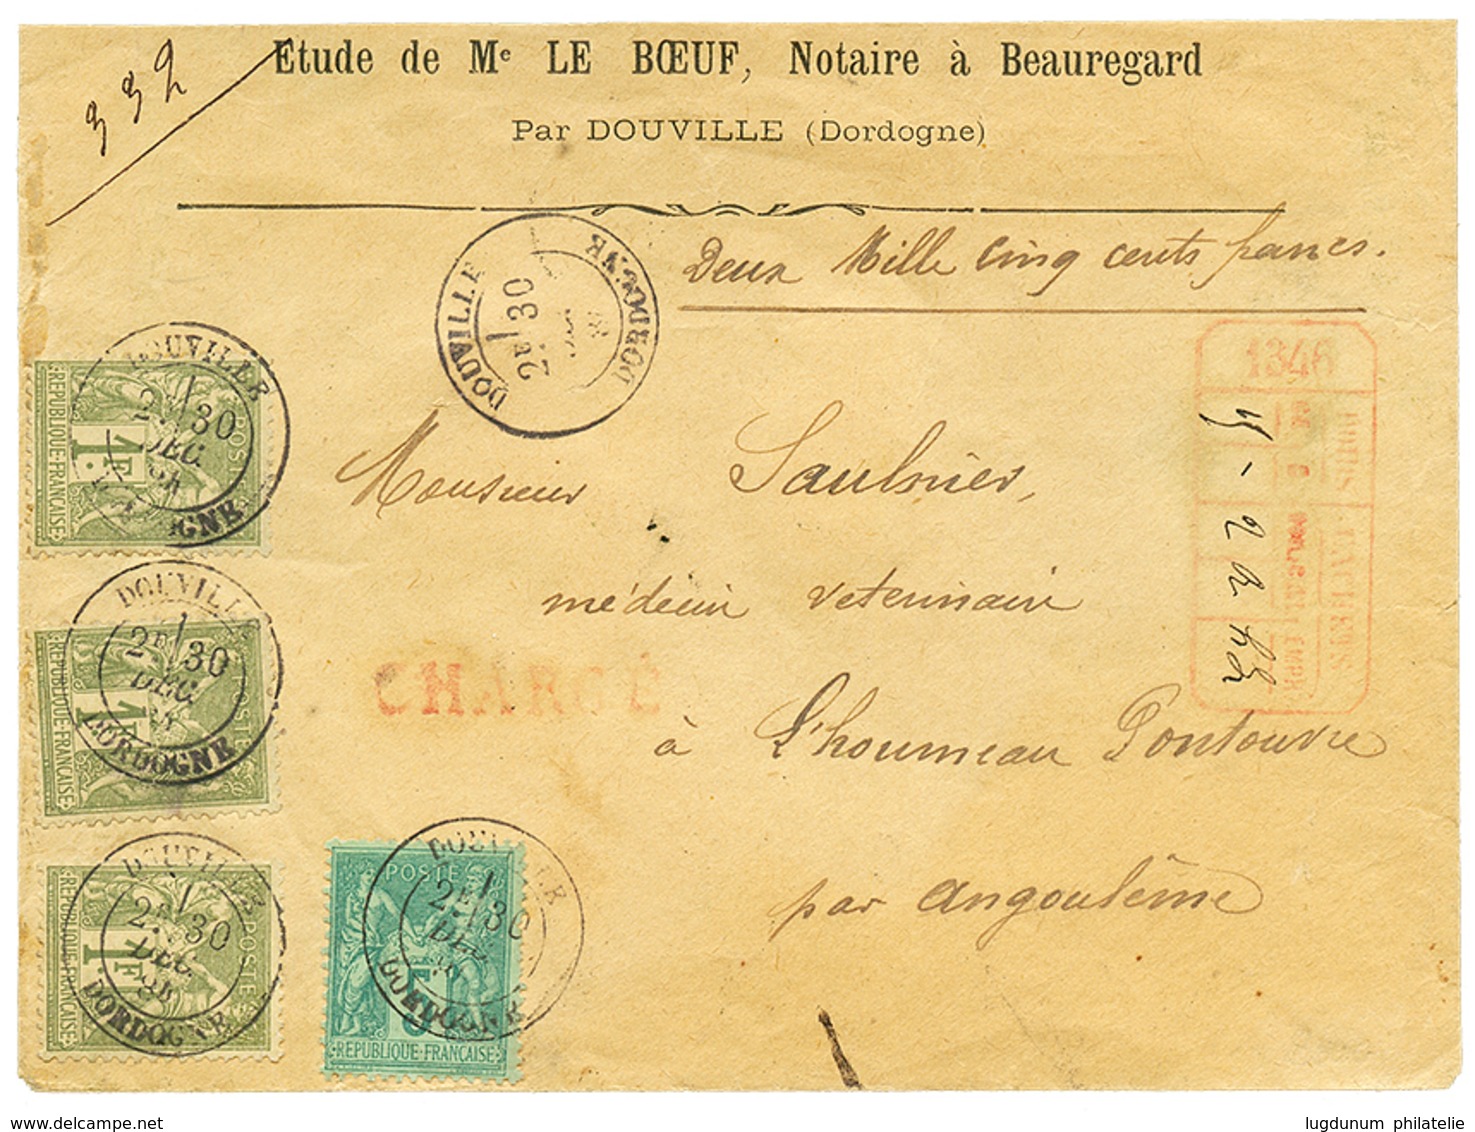 Etude de Me LE BŒUF, Notaire à Beauregard
Par DOUVILLE (Dordogne)
332
Deux Mille Cinq cents francs.
DOUVILLE
2E 30
DORDOGNE
1346
Monsieur Saulnier,
médecin veterinaire
CHARGÉ
à L'houmeau Pontouvre
par Angoulême
REPUBLIQUE·FRANÇAISE
POSTE
1F
DOUVILLE
2E 30
DEC.
DORDOGNE
REPUBLIQUE·FRANÇAISE
POSTE
1F
DOUVILLE
2E 30
DEC.
DORDOGNE
REPUBLIQUE·FRANÇAISE
POSTE
1F
DOUVILLE
2E 30
DEC.
DORDOGNE
POSTE
5
REPUBLIQUE·FRANÇAISE
DOUVILLE
2E 30
DEC.
DORDOGNE
www.delcampe.net
lugdunum philatelie